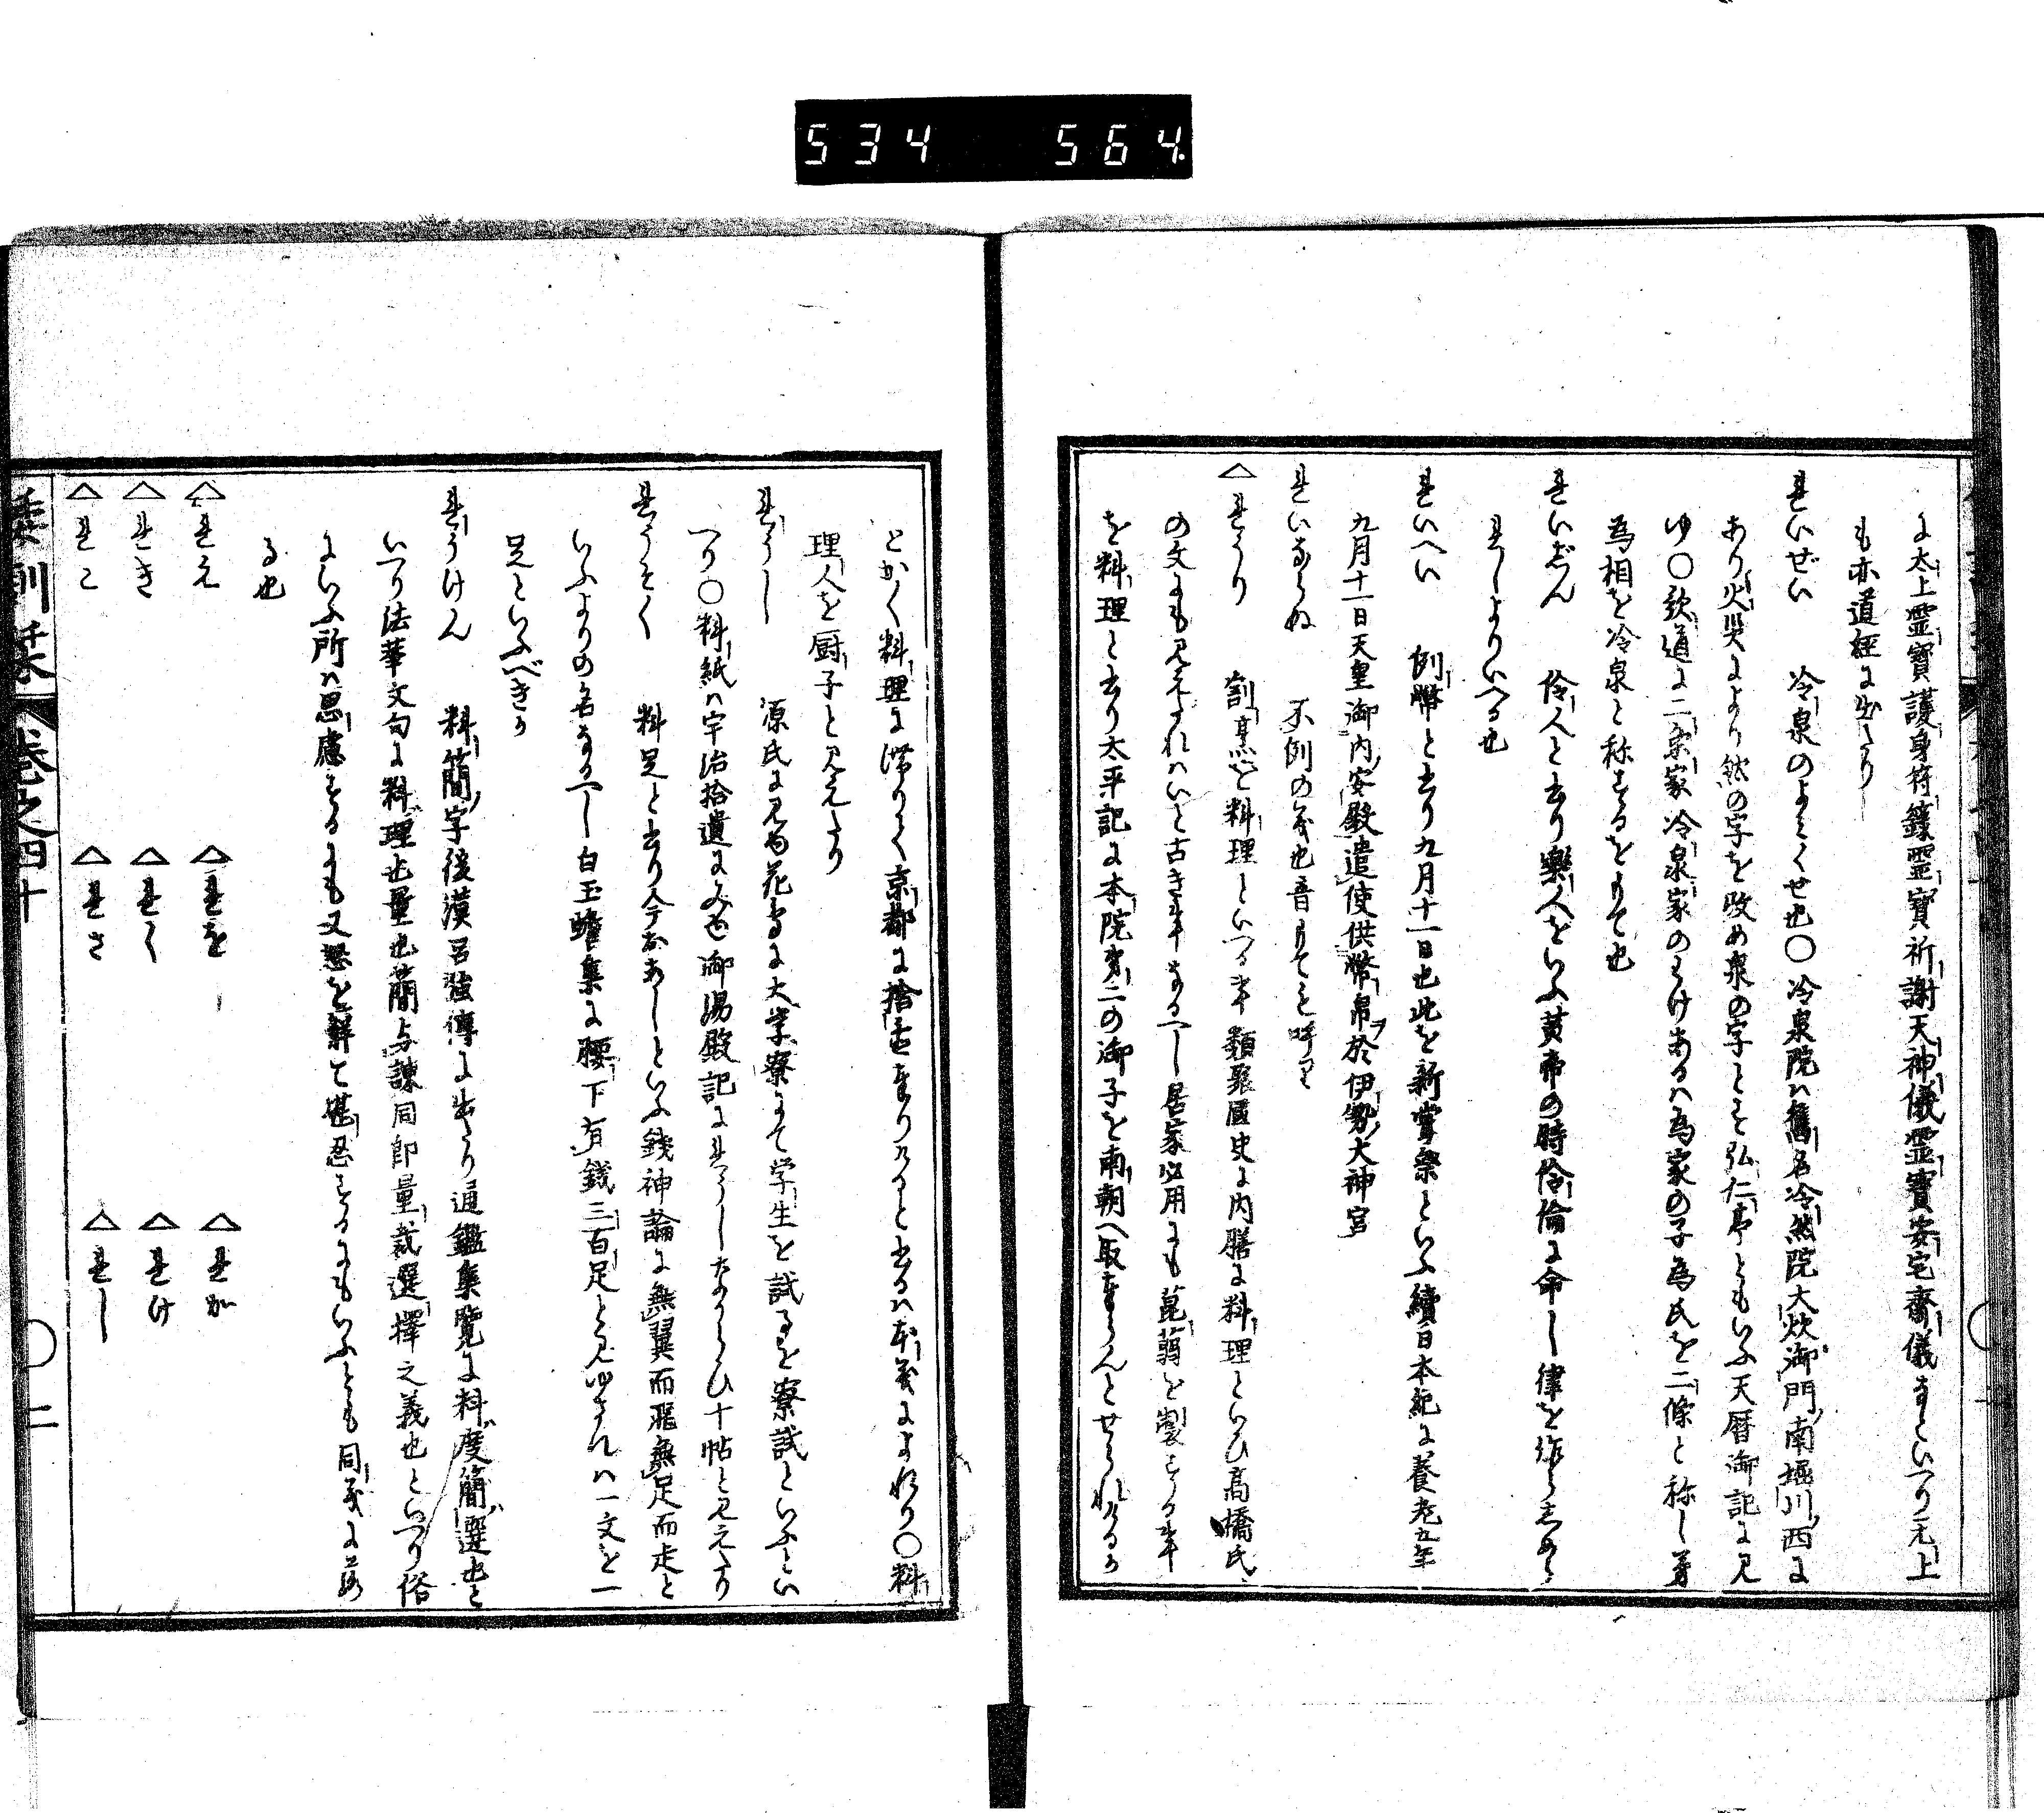 534 564.
に太上霊寶護身符籙霊寶祈謝天神儀霊寶安宅斎儀なといへり元上
も亦道経に出たり
れいぜい 冷泉のよこくせ也〇冷泉院ハ舊名冷然院大炊御門南堀川西に
あり火災により然の字を改め泉の字とそ弘仁亭ともいふ天暦御記に見
ゆ〇歌道に二条家冷泉家のわけあるハ為家の子為氏を二條と称し弟
為相を冷泉と称するをもて也
れいじん 伶人と書り樂人をいふ黄帝の時伶倫に命し律を作らしめ
れしよりいへる也
れいへい 例幣と書り九月十一日也此を新嘗祭といふ續日本紀に養老五年
九月十一日天皇御内安殿遣使供幣帛ヲ於伊勢大神宮
れいならぬ 不例の義也音もてそ呼り
△れうり 割烹を料理といへる事類聚国史に内膳に料理といひ高橋氏
の文にも見えたれハいと古き事なるへし居家必用にも菎蒻を製する事
を料理と書り太平記に本院第二の御子を南朝へ取奉らんとせられけるか
とかく料理に滞りて京都に捨奉りけると書るハ本義によれり〇料
理人を厨子と見えたり
れうし 源氏に見ゆ花鳥に大学寮にて学生を試るを寮試といふとい
へり〇料紙ハ宇治拾遺にみゆ御湯殿記にれうしなからひ十帖と見えたり
れうそく 料足と書り人テおあしといふ銭神論に無翼而飛無足而走と
いふよりの名なるへし白玉蟾集に腰下有銭三百足と見ゆされハ一文を一
足といふべきか
れうけん 料簡ノ字後漢呂強傳に出たり通鑑集覧に料ハ度簡ハ選也と
いへり法華文句に料理也量也簡与諫同即量裁選擇之義也といへり俗
にいふ所ハ思慮するにも又怒を鮮と堪忍するにもいふとも同義に落
る也
△れえ △れを △れが
△れき △れく △れけ
△れこ △れさ △れし
倭訓栞 巻之四十 〇二